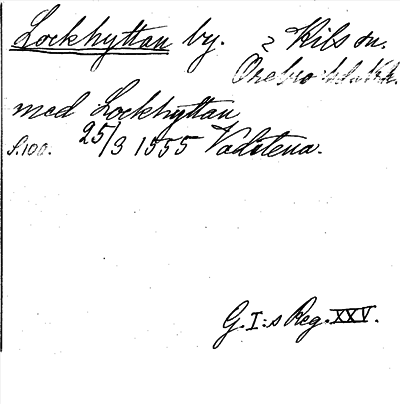 Lockhyttan by. i Kils sn.
Örebro
med Lockhyttan
s. 100. 25/3 1555 Vadstena.
G. I:s Reg. XXV.